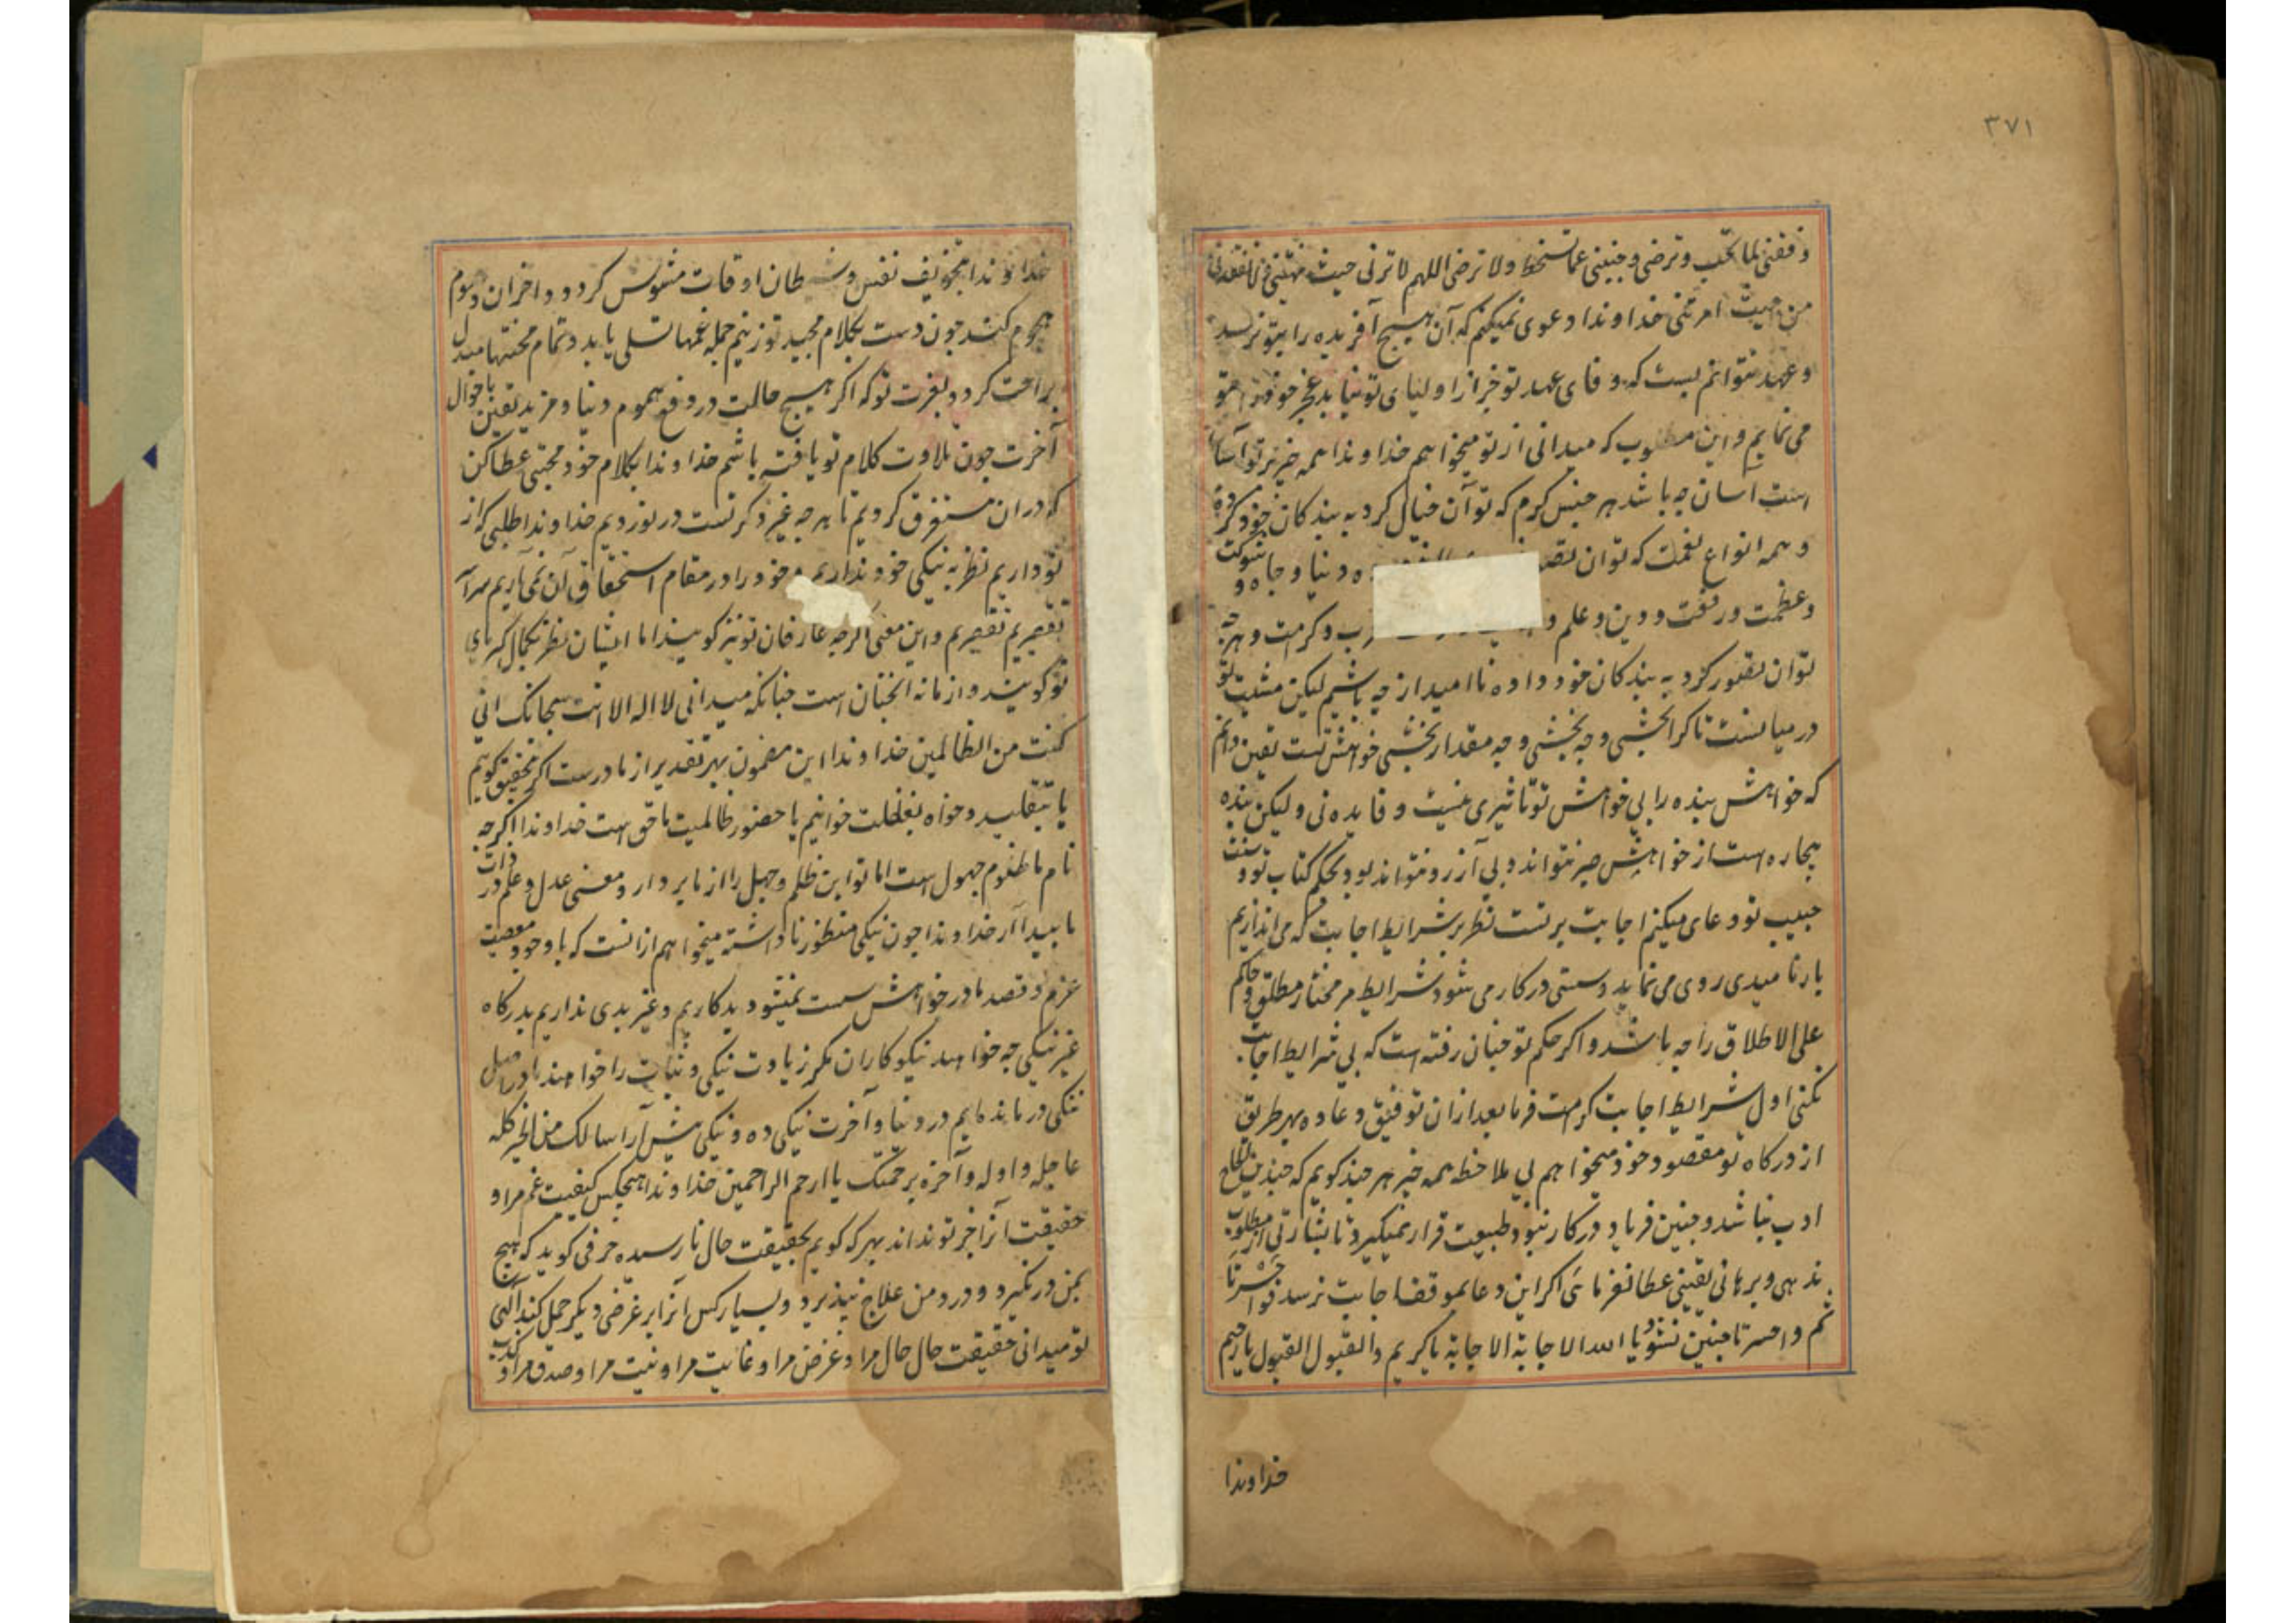 ۳۷۱
وفقنی لما تحب و ترضی و جنبنی عما تسخط و لا ترضی اللهم لا ترنی حیث نهیتنی و لا تفقدنی
من حیث امرتنی خداوندا دعوی نمیکنم که آن هیچ آفریده را بتو نرسد
و عهد نتوانم بست که وفای عهد تو جز از اولیای تو نیاید عجز خود
می نمایم و این مطلوب که میدانی از تو میخواهم خداوندا همه چیز بر تو آسان
است آسان چه باشد هر جنس کرم که توان خیال کرد به بندکان خود کرده
و همه انواع نعمت که توان دنیا و جاه و شوکت
و عظمت و رفعت و دین و علم و و کرامت و هرچه
توان تصور کرد به بندکان خود داده ناامید از چه باشیم لیکن مشیت تو
در میانست تا کرا بخشی و چه بخشی و چه مقدار بخشی خواهش تست یقین دانم
که خواهش بنده را بی خواهش تو تاثیری نیست و فایده نی ولیکن بنده
بیچاره است از خواهش صبر نتواند و بی آرزو نتواند بود بحکم کتاب تو و سنت
حبیب تو دعای میکنم اجابت بر تست نظر بر شرایط اجابت که می اندازیم
بار ناامیدی روی می نماید و سستی در کار می شود شرایط مر مختار مطلق و حاکم
علی الاطلاق را چه باشد و اکر حکم تو چنان رفته است که بی شرایط اجابت
نکنی اول شرایط اجابت کرامت فرما بعد ازان توفیق دعا ده بهر طریق
از درکاه تو مقصود خود میخواهم بی ملاحظه همه چیز هر چند کویم که چندین الحاح
ادب نباشد و چنین فریاد در کار نبود طبیعت قرار نمیکیرد تا بشارتی از مطلوب
ندهی و برهانی یقینی عطا نفرمائی اکر این دعا بموقف اجابت نرسد فوا حسرتا
ثم وا حسرتا چنین نشود یا الله الاجابة الاجابة یا کریم و القبول القبول یا رحیم
خداوندا
خداوندا بتخویف نفس و شیطان اوقات مشوش کردد و احزان و هموم
هجوم کنند چون دست بکلام مجید تو زنیم جمله غمها تسلی یابد و تمام محنتها مبدل
براحت کردد بعزت تو که اکر هیچ حالت در دفع هموم دنیا و مزید یقین باحوال
آخرت چون تلاوت کلام تو یافته باشم خداوندا بکلام خود محبتی عطا کن
که دران مستغرق کردیم تا هرچه غیر ذکر تست در نوردیم خداوندا طلبی که از
تو داریم نظر به نیکی خود نداریم و خود را در مقام استحقاق آن نمی آریم سراسر
تقصیریم تقصیریم و این معنی اکرچه عارفان تو نیز کویند اما ایشان نظر بکمال کبریای
تو کویند و از ما نه آنچنان است چنانکه میدانی لا اله الا انت سبحانک انی
کنت من الظالمین خداوندا این مضمون بهر تقدیر از ما درست اکر بتحقیق کویم
یا بتقلید و خواه بغفلت خوانیم یا حضور ظالمیت ما حق است خداوندا اکرچه
نام ما ظلوم جهول است اما تو این ظلم و جهل را از ما بردار و معنی عدل و علم در ذات
ما پیدا آر خداوندا چون نیکی منظور نا داشته میخواهم ازانست که با وجود معصیت
عزم و قصد ما در خواهش سست نمیشود بدکاریم و غیر بدی نداریم بدرکاه
غیر نیکی چه خواهند نیکوکاران مکر زیادت نیکی و ثبات را خواهند ما در اصل
نیکی درمانده ایم در دنیا و آخرت نیکی ده و نیکی پیش آر اسالک من الخیر کله
عاجله و اوله و آخره برحمتک یا ارحم الراحمین خداوندا هیچکس کیفیت غم مرا و
حقیقت آنرا جز تو نداند بهر که کویم بحقیقت حال نا رسیده حرفی کوید که هیچ
بمن درنکیرد و درد من علاج نپذیرد و بسیار کس آنرا بر غرضی دیکر حمل کند الهی
تو میدانی حقیقت حال حال مرا و غرض مرا و غایت مرا و نیت مرا و صدق مرا و کذب